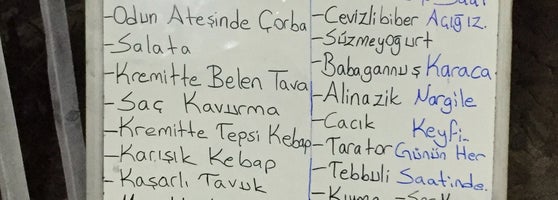 -Odun Ateşinde Çorba
-Salata
-Kremitte Belen Tava
-Saç Kavurma
-Kremitte Tepsi Kebap
-Karışık Kebap
-Kaşarlı Tavuk
-Cevizlibiber Açığız.
-Süzmeyoğurt
-Babagannuş Karaca
-Alinazik Nargile
-Cacık Keyfi-
-Tarator Günün Her
-Tebbuli Saatinde.